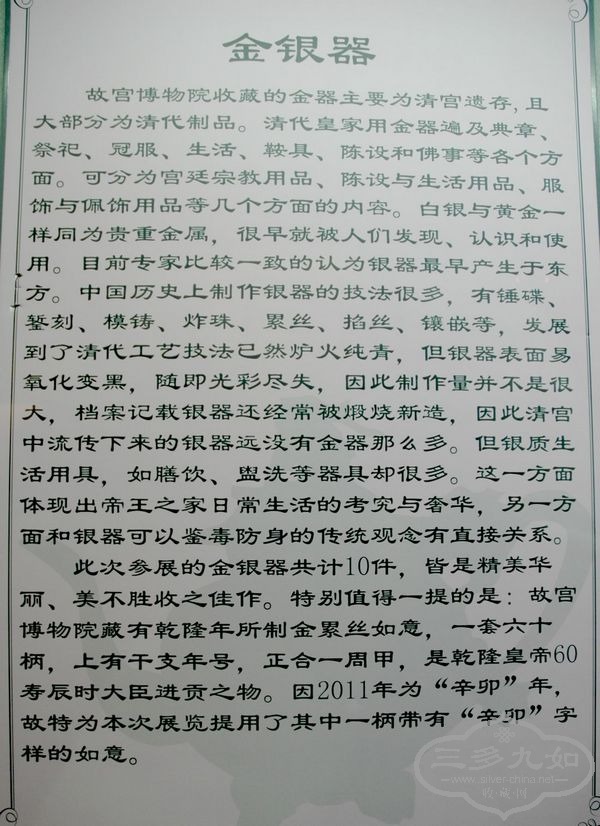 金银器
故宫博物院收藏的金器主要为清宫遗存,且
大部分为清代制品。清代皇家用金器遍及典章、
祭祀、冠服、生活、鞍具、陈设和佛事等各个方
面。可分为宫廷宗教用品、陈设与生活用品、服
饰与佩饰用品等几个方面的内容。白银与黄金一
样同为贵重金属，很早就被人们发现、认识和使
用。目前专家比较一致的认为银器最早产生于东
方。中国历史上制作银器的技法很多，有锤碟、
錾刻、模铸、炸珠、累丝、掐丝、镶嵌等，发展
到了清代工艺技法已然炉火纯青，但银器表面易
氧化变黑，随即光彩尽失，因此制作量并不是很
大，档案记载银器还经常被煅烧新造，因此清宫
中流传下来的银器远没有金器那么多。但银质生
活用具，如膳饮、盥洗等器具却很多。这一方面
体现出帝王之家日常生活的考究与奢华，另一方
面和银器可以鉴毒防身的传统观念有直接关系。
此次参展的金银器共计10件，皆是精美华
丽、美不胜收之佳作。特别值得一提的是：故宫
博物院藏有乾隆年所制金累丝如意，一套六十
柄，上有干支年号，正合一周甲，是乾隆皇帝60
寿辰时大臣进贡之物。因2011年为“辛卯”年，
故特为本次展览提用了其中一柄带有“辛卯”字
样的如意。
三多九如
www.silver-china.net
收藏网